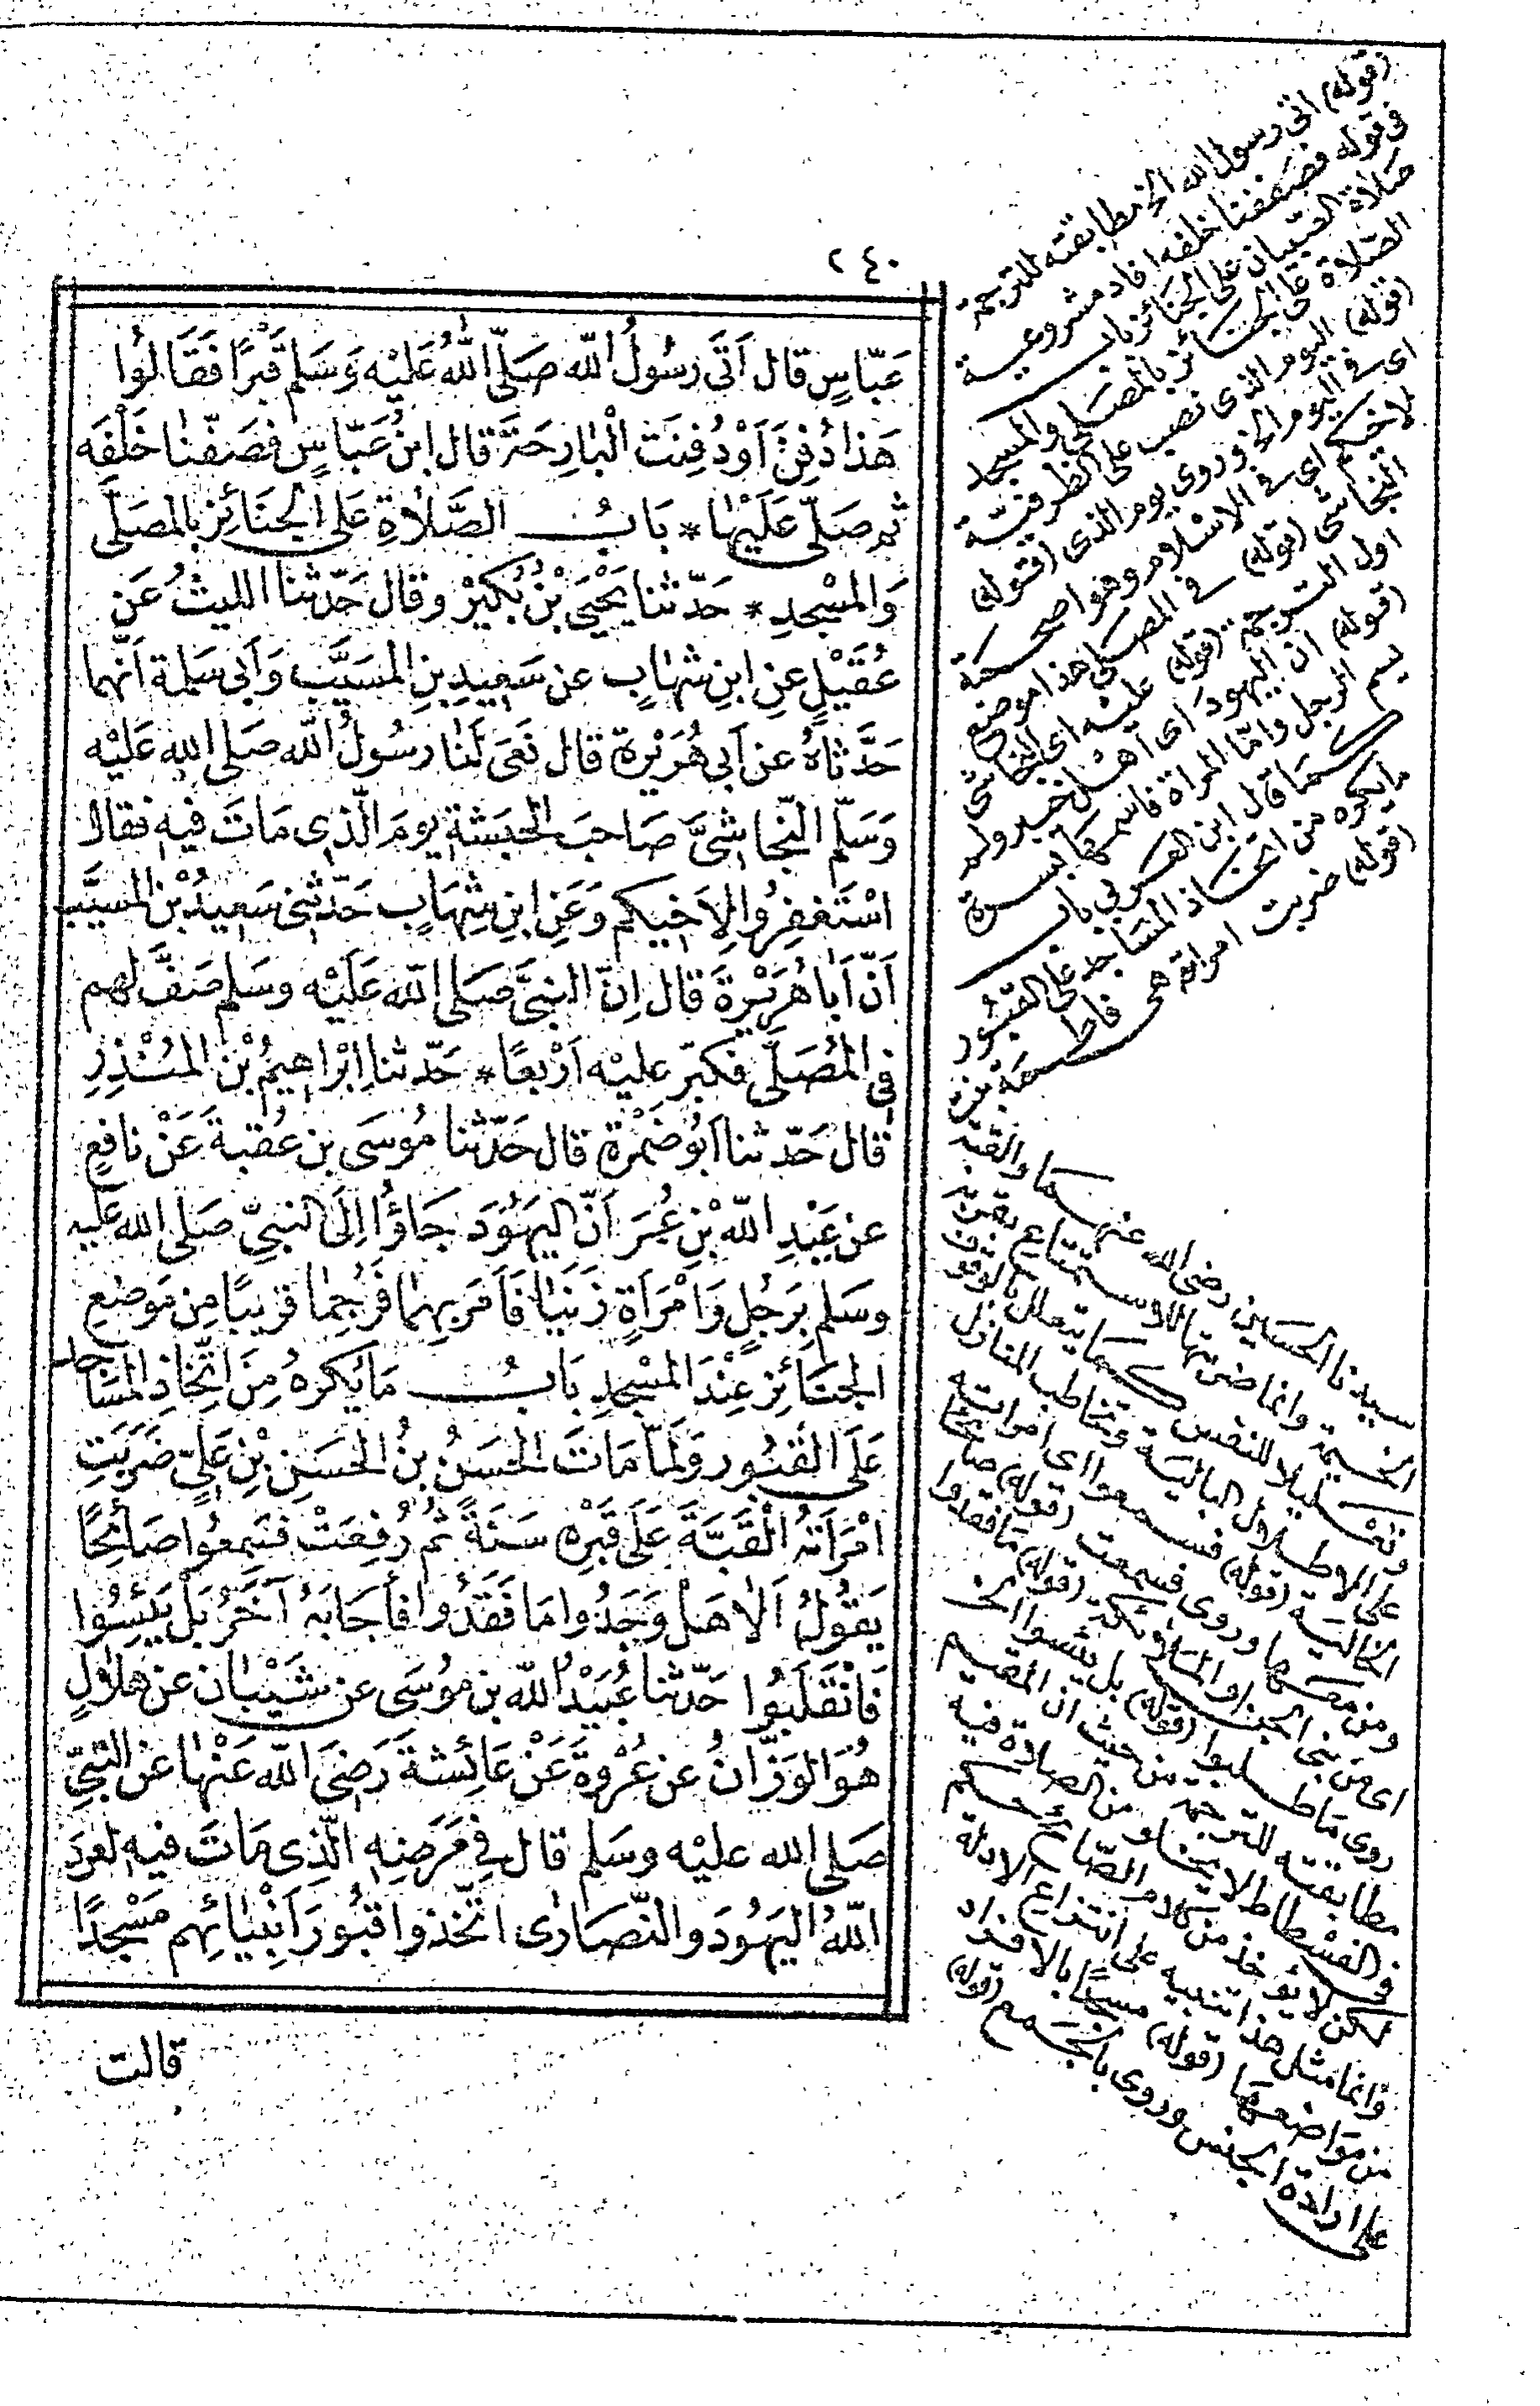 ٢٤٠
عَبّاسٍ قال اَتَى رَسُولُ الله صَلّى اللهُ عَلَيْه وَسَلم قَبْرًا فَقَالُوا
هَذا دُفِنَ اَوْ دُفِنَت الْبَارِحَةَ قال ابنُ عَبّاسٍ فصَفّنَا خَلْفَه
ثم صَلّى عَلَيْها * بَابُ الصَّلاةِ عَلى الجنَائِز بالمصَلّى
وَالمسْجدِ * حَدّثنا يَحْيَى بْنُ بُكَيْر وقال حَدّثنا الليثُ عَن
عُقَيْلٍ عنِ ابنِ شهَابٍ عن سَعِيدِ بنِ المسَيَّب وَاَبى سَلمة اَنّهما
حَدَّثاهُ عن اَبى هُرَيْرة قال نَعَى لَنا رسُولُ الله صَلى الله عَلَيْه
وَسَلّم النّجاشىَّ صَاحبَ الحَبَشةِ يومَ الّذِى مَاتَ فيهِ فقالَ
اسْتَغفِرُوا لِاَخيكم وَعَنِ ابنِ شِهَابٍ حَدّثنى سَعيدُ بْنُ المسَيَّب
اَنّ اَبا هُرَيْرةَ قال اِنّ النبىَّ صَلى الله عَلَيْه وسَلم صَفَّ لهم
فِى المُصَلّى فكبّر عليْه اَرْبعًا * حَدّثنا اِبْرَاهيمُ بْنُ المُنْذِرِ
قال حَدّثنا اَبُو ضَمْرة قال حَدّثنا مُوسَى بن عُقبةَ عَنْ نافعٍ
عن عَبْدِ الله بْنِ عُمَرَ اَنّ اليَهُودَ جَاؤُا اِلَى النبىِّ صَلى الله عَلَيه
وسَلم بِرَجُلٍ وَامْرَاَةٍ زَنَيَا فَاَمَر بِهِمَا فَرُجِمَا قريبًا مِن مَوضِعِ
الجَنَائِز عِنْدَ المسْجدِ بَابُ مَا يُكرَهُ مِنَ اتّخاذِ المسَاجد
عَلَى القُبُور وَلمّا مَاتَ الحَسَنُ بنُ الحَسَنِ بْنِ عَلىّ ضَرَبَتِ
امْرَاَتهُ الْقبَّةَ عَلَى قَبْرِه سَنَةً ثُم رُفِعَتْ فسَمِعُوا صَائِحًا
يَقُولُ اَلَا هَل وَجَدُوا مَا فَقَدُوا فأجَابَهُ آخَرُ بَلْ يَئِسُوا
فَانْقَلَبُوا حَدّثنا عُبَيْدُ الله بن مُوسَى عن شَيْبَان عن هلَالٍ
هُوَ الوَزّانُ عن عُرْوةَ عَنْ عَائِشةَ رَضِىَ الله عَنْها عنِ النّبِىِّ
صَلى الله عليْه وسَلم قال فِى مَرَضِهِ الّذِى مَاتَ فيهِ لعَنَ
اللهُ اليَهُودَ والنّصَارَى اتّخذوا قبُورَ اَنْبيَائِهِم مَسْجدًا
قالت
(قوله) اتى رسول الله الخ مطابقته للترجمة
فى قوله فصففنا خلفه افاد مشروعية
صَلاة الصّبيان على الجنائز باب
الصّلاة على الجنائز بالمصلى والمسجد
(قوله) اليوم الذى نصب على الظرفيّة
اى فى اليوم الخ وروى يوم الذى (قوله)
لاخيكم اى فى الاسْلام وهو اصحمة
النجاشى (قوله) فى المصلى هذا موضع
اول الترجمة (قوله) عليه اى النجاشى
(قوله) ان اليهود اى اهل خيبر ولم
يسم الرجل وامّا المراة فاسمها بسرة
كما قال ابن العربى باب
مايكره من اتخاذ المساجد على القبُور
(قوله) ضربت امراته هى فاطمة بنت
سيدنا الحسَين رضى الله عنهما والقبّة
الخيمة وانما ضربتها للاستمتاع بقربه
وتعليلا للنفس كما يتعلل بالوقوف
على الاطلال البالية وتخاطب المنازل
الخالية (قوله) فسمعوا اى امراته
ومن معها وروى فسمعت (قوله) صائحا
اى من بنى الجن او الملائكة (قوله) ما فقدوا
روى ما طلبوا (قوله) بل يئسوا الخ
مطابقته للترجمة من حيث ان المقيم
فى الفسْطاط لا يخلو من الصلاة فيه
لكن لا يؤخذ من كلام الصّائح حكم
وانما مثل هذا تنبيه على انتزاع الادلة
من مواضعها (قوله) مسجدًا بالافراد
على ارادة الجنس وروى بالجمع (قوله)